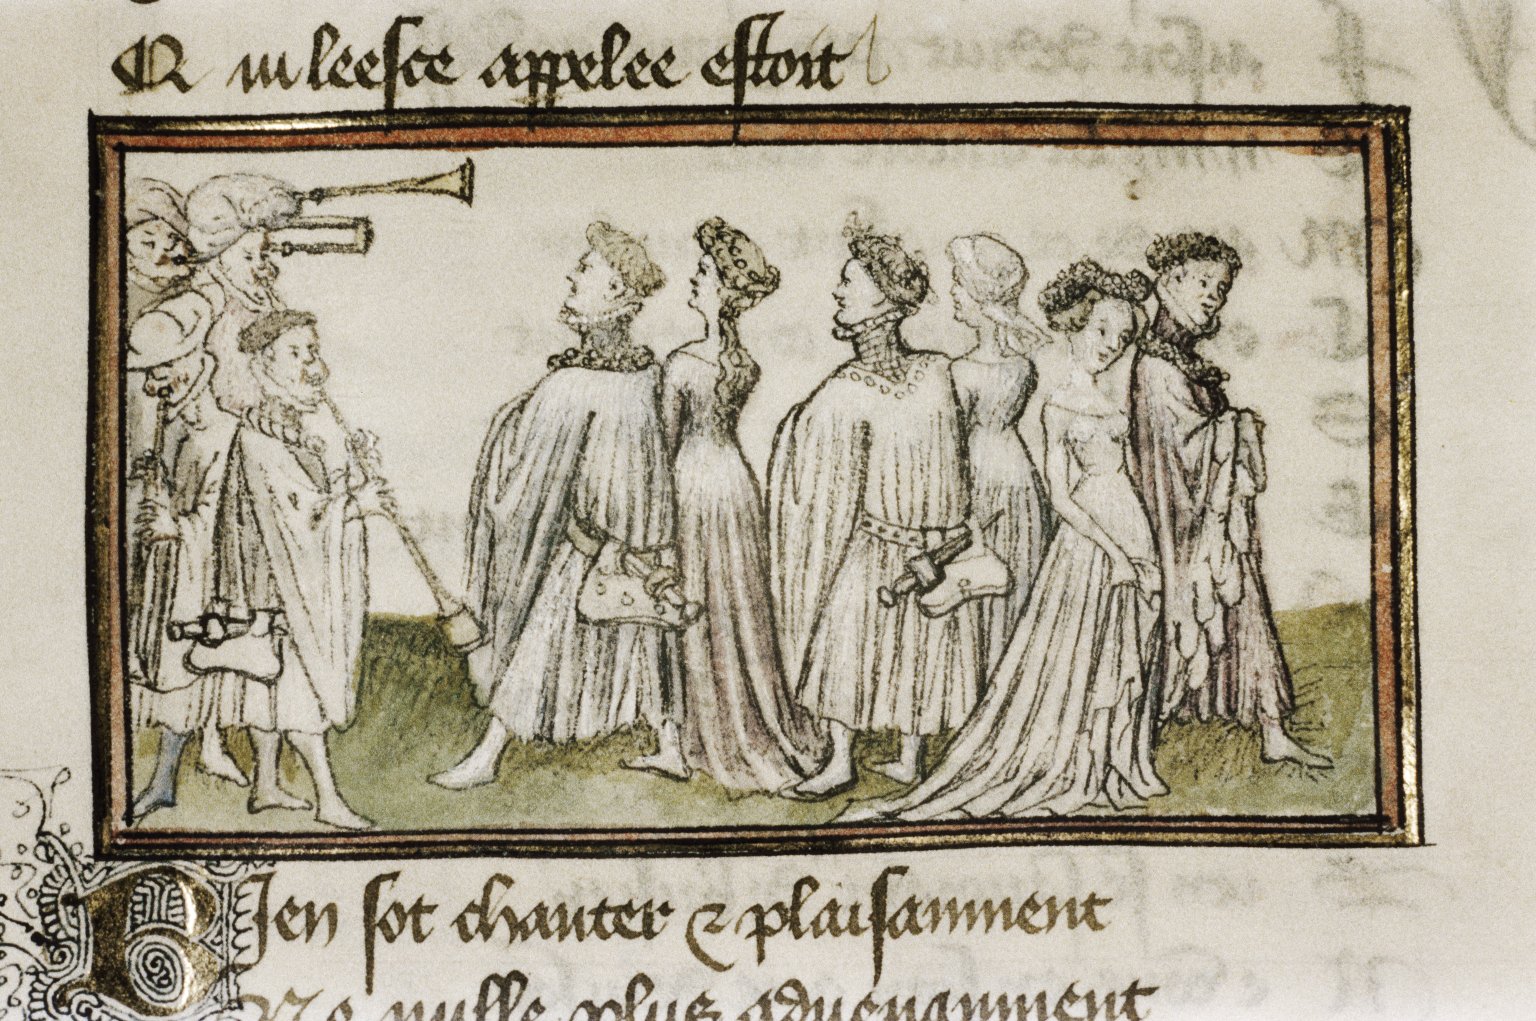 Qui leesce appelee estoit
Bien sot chanter ⁊ plaisanment
Ne nulle plus aduenanment